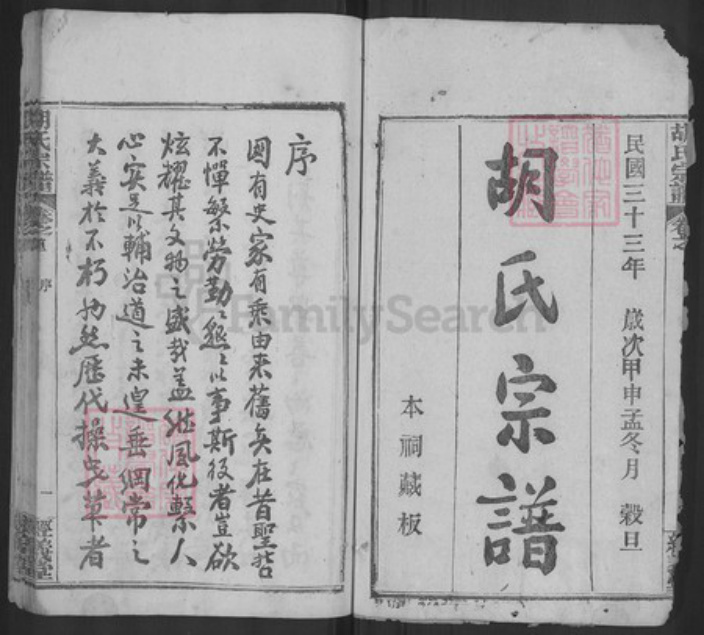 胡氏宗譜
民國三十三年 歲次甲申孟冬月 穀旦
胡氏宗譜
本祠藏板
序
國有史家有乘由來舊矣在昔聖哲
不憚繁勞勤勤懇懇以事斯役者豈欲
炫耀其文物之盛哉蓋維風化繫人
心實足以輔治道之未遑垂綱常之
大義於不朽也然歷代操史草者
胡氏宗譜 卷之首 序 一 經義堂
FamilySearch